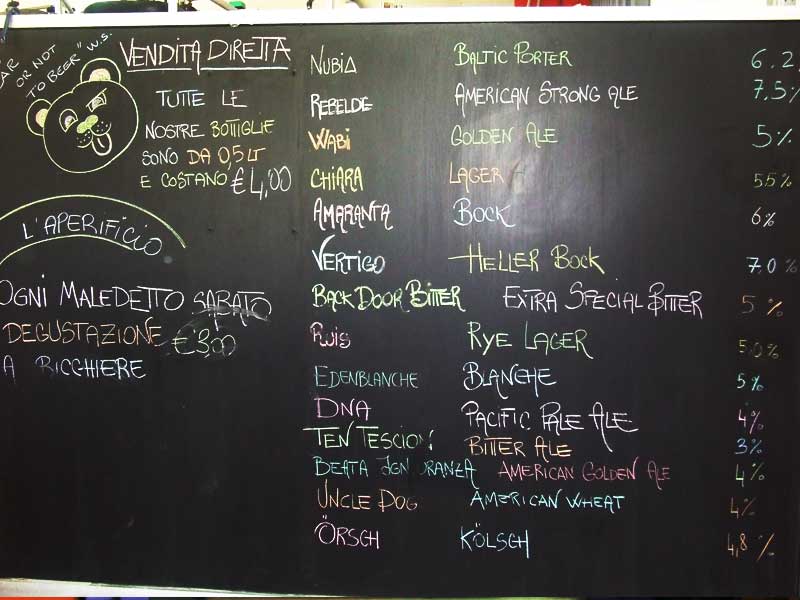 OR NOT
TO BEER" W.S.
VENDITA DIRETTA
TUTTE LE
NOSTRE BOTTIGLIE
SONO DA 0,5 LT
E COSTANO €4,00
L'APERIFICIO
OGNI MALEDETTO SABATO
DEGUSTAZIONE €3,00
A BICCHIERE
NUBIA BALTIC PORTER 6.2
REBELDE AMERICAN STRONG ALE 7,5%
WABI GOLDEN ALE 5%
CHIARA LAGER 5.5%
AMARANTA BOCK 6%
VERTIGO HELLER BOCK 7.0%
BACK DOOR BITTER EXTRA SPECIAL BITTER 5%
RUIS RYE LAGER 5.0%
EDENBLANCHE BLANCHE 5%
DNA PACIFIC PALE ALE 4%
TEN TESCION! BITTER ALE 3%
BEATA IGNORANZA AMERICAN GOLDEN ALE 4%
UNCLE DOG AMERICAN WHEAT 4%
ÖRSCH KÖLSCH 4,8%